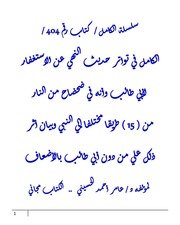 سلسلة الكامل / كتاب رقم 404 /
الكامل في تواتر حديث النهي عن الاستغفار
لأبي طالب وأنه في ضحضاح من النار
من ( 15 ) طريقا مختلفا إلي النبي وبيان أثر
ذلك علي من دون أبي طالب بالأضعاف
لمؤلفه د / عامر أحمد الحسيني .. الكتاب مجاني
1